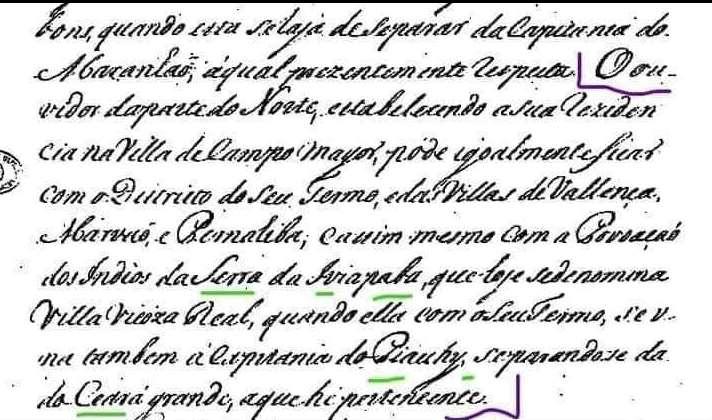 tons, quando esta se haja de separar da Capitania do
Maranhaõ, á qual prezentemente respeita. O ou-
vidor da parte do Norte, estabelecendo a sua rezidên
cia na Villa de Campo mayor, póde igoalmente ficar
com o Districto do seu Termo, e das Villas de Vallença,
Marvaõ, e Pernaliba; e assim mesmo com a Povoaçaõ
dos Indios da Serra da Iviapaba, que hoje se denomina
Villa Vicóza Real, quando ella com o seu Termo, se v-
na tambem á Capitania do Piauhy, separandose da
do Ceará grande, a que hé pertencente.